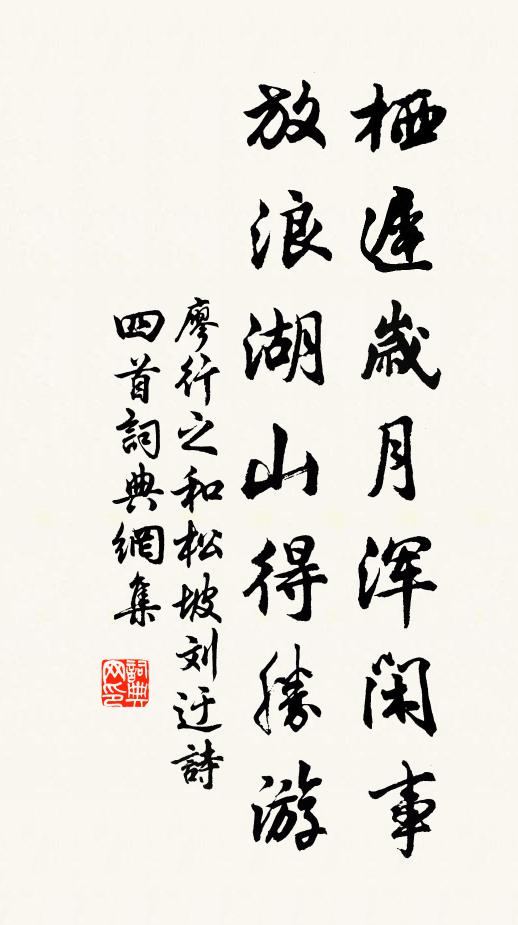 栖遲歲月浑闲事
放浪湖山得勝游
廖行之和松坡刘迂詩
四首詞典網集
詞典网印